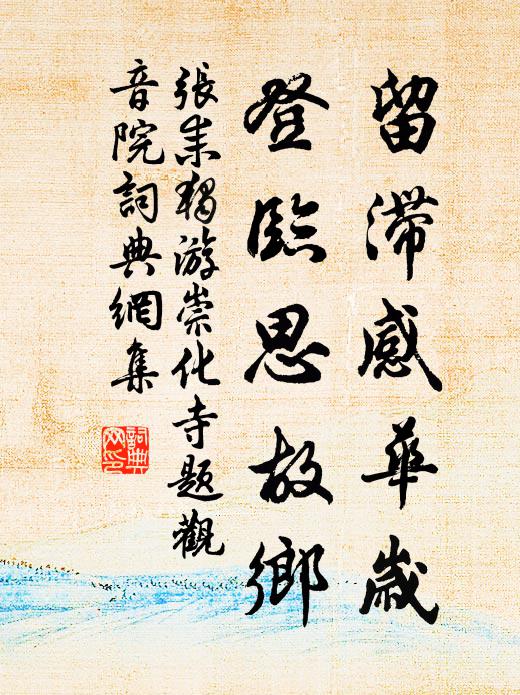 留滯感華歲
登臨思故鄉
張耒獨游崇化寺題觀
音院詞典網集
詞典
网印